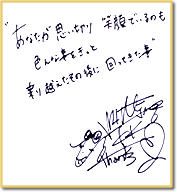 "あなたが思いっきり 笑顔でいるのも
色んな事をきっと
乗り越えたその後に 回ってきた事"
Thanks